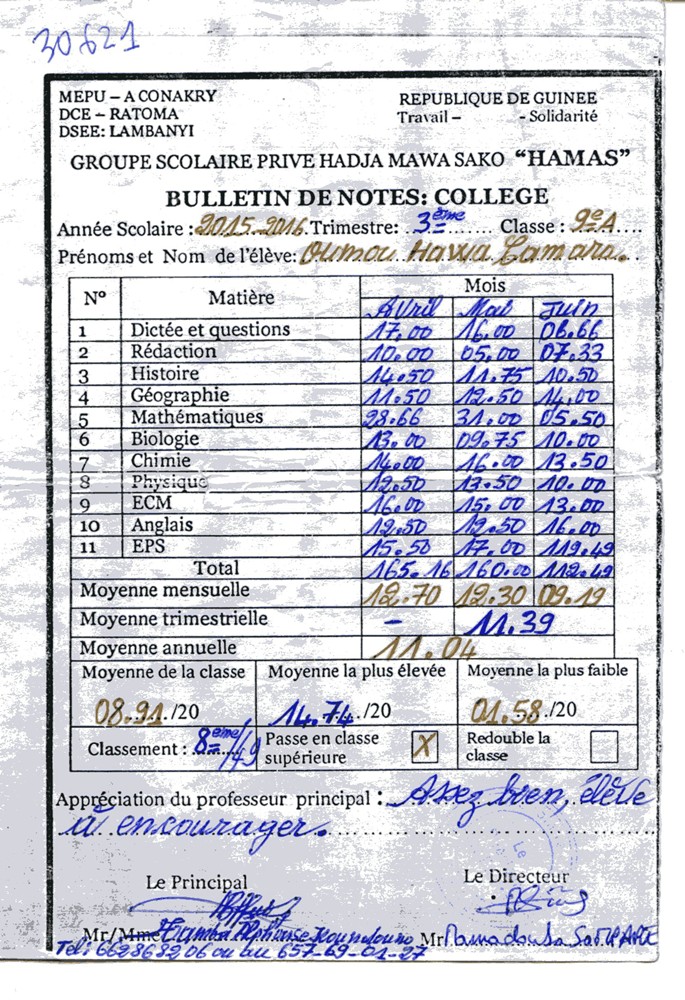 30621
MEPU – A CONAKRY
DCE – RATOMA
DSEE: LAMBANYI
REPUBLIQUE DE GUINEE
Travail – - Solidarité
GROUPE SCOLAIRE PRIVE HADJA MAWA SAKO “HAMAS”
BULLETIN DE NOTES: COLLEGE
Année Scolaire : 2015-2016 Trimestre: 3ème Classe : 9e A
Prénoms et Nom de l'élève: Oumou Hawa Camara.
N° Matière Mois
Avril Mai Juin
1 Dictée et questions 17.00 16.00 06.66
2 Rédaction 10.00 05.00 07.33
3 Histoire 14.50 11.75 10.50
4 Géographie 11.50 12.50 14.00
5 Mathématiques 28.66 31.00 05.50
6 Biologie 13.00 09.75 10.00
7 Chimie 14.00 16.00 13.50
8 Physique 12.50 13.50 10.00
9 ECM 16.00 15.00 13.00
10 Anglais 12.50 12.50 16.00
11 EPS 15.50 17.00 119.49
Total 165.16 160.00 112.49
Moyenne mensuelle 12.70 12.30 09.19
Moyenne trimestrielle - 11.39
Moyenne annuelle 11.04
Moyenne de la classe Moyenne la plus élevée Moyenne la plus faible
08.91/20 14.74/20 01.58/20
Classement : 8ème/49 Passe en classe supérieure X Redouble la classe
Appréciation du professeur principal : Assez bien, élève
à encourager.
Le Principal Le Directeur
Mr/Mme Tamba Alphonse Koundouno Mr Mamadouba
Tel: 662868206 ou au 657-69-01-27